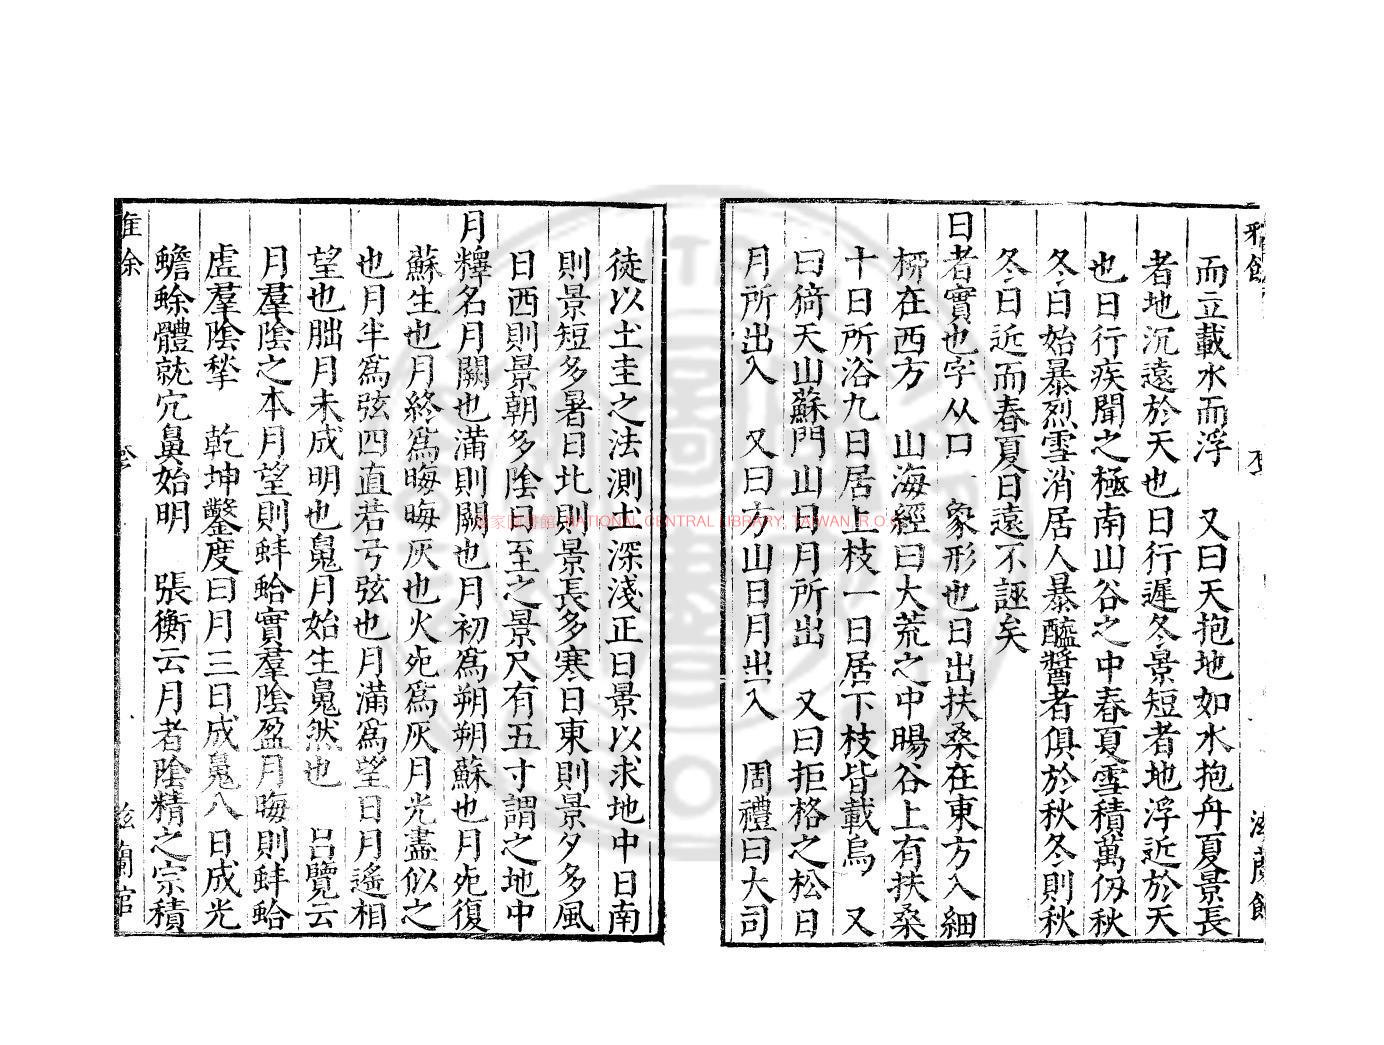 而立載水而浮　又曰天抱地如水抱舟夏景長
者地沉遠於天也日行遲冬景短者地浮近於天
也日行疾聞之極南山谷之中春夏雪積萬仞秋
冬日始暴烈雪消居人暴醯醬者俱於秋冬則秋
冬日近而春夏日遠不誣矣
日者實也字从口一象形也日出扶桑在東方入細
桺在西方　山海經曰大荒之中暘谷上有扶桑
十日所浴九日居上枝一日居下枝皆載烏　又
曰猗天山蘇門山日月所出　又曰拒格之松日
月所出入　又曰方山日月出入　周禮曰大司
徒以土圭之法測土深淺正日景以求地中日南
則景短多暑日北則景長多寒日東則景夕多風
日西則景朝多陰日至之景尺有五寸謂之地中
月釋名月闕也滿則闕也月初為朔朔蘇也月死復
蘇生也月終為晦晦灰也火死為灰月光盡似之
也月半為弦四直若弓弦也月滿為望日月遙相
望也朏月未成明也䰟月始生䰟然也　呂覽云
月羣陰之本月望則蚌蛤實羣陰盈月晦則蚌蛤
虛羣陰揫　乾坤鑿度曰月三日成䰟八日成光
蟾蜍體就穴鼻始明　張衡云月者陰精之宗積
蘭館
國家圖書館 NATIONAL CENTRAL LIBRARY, TAIWAN, R.O.C